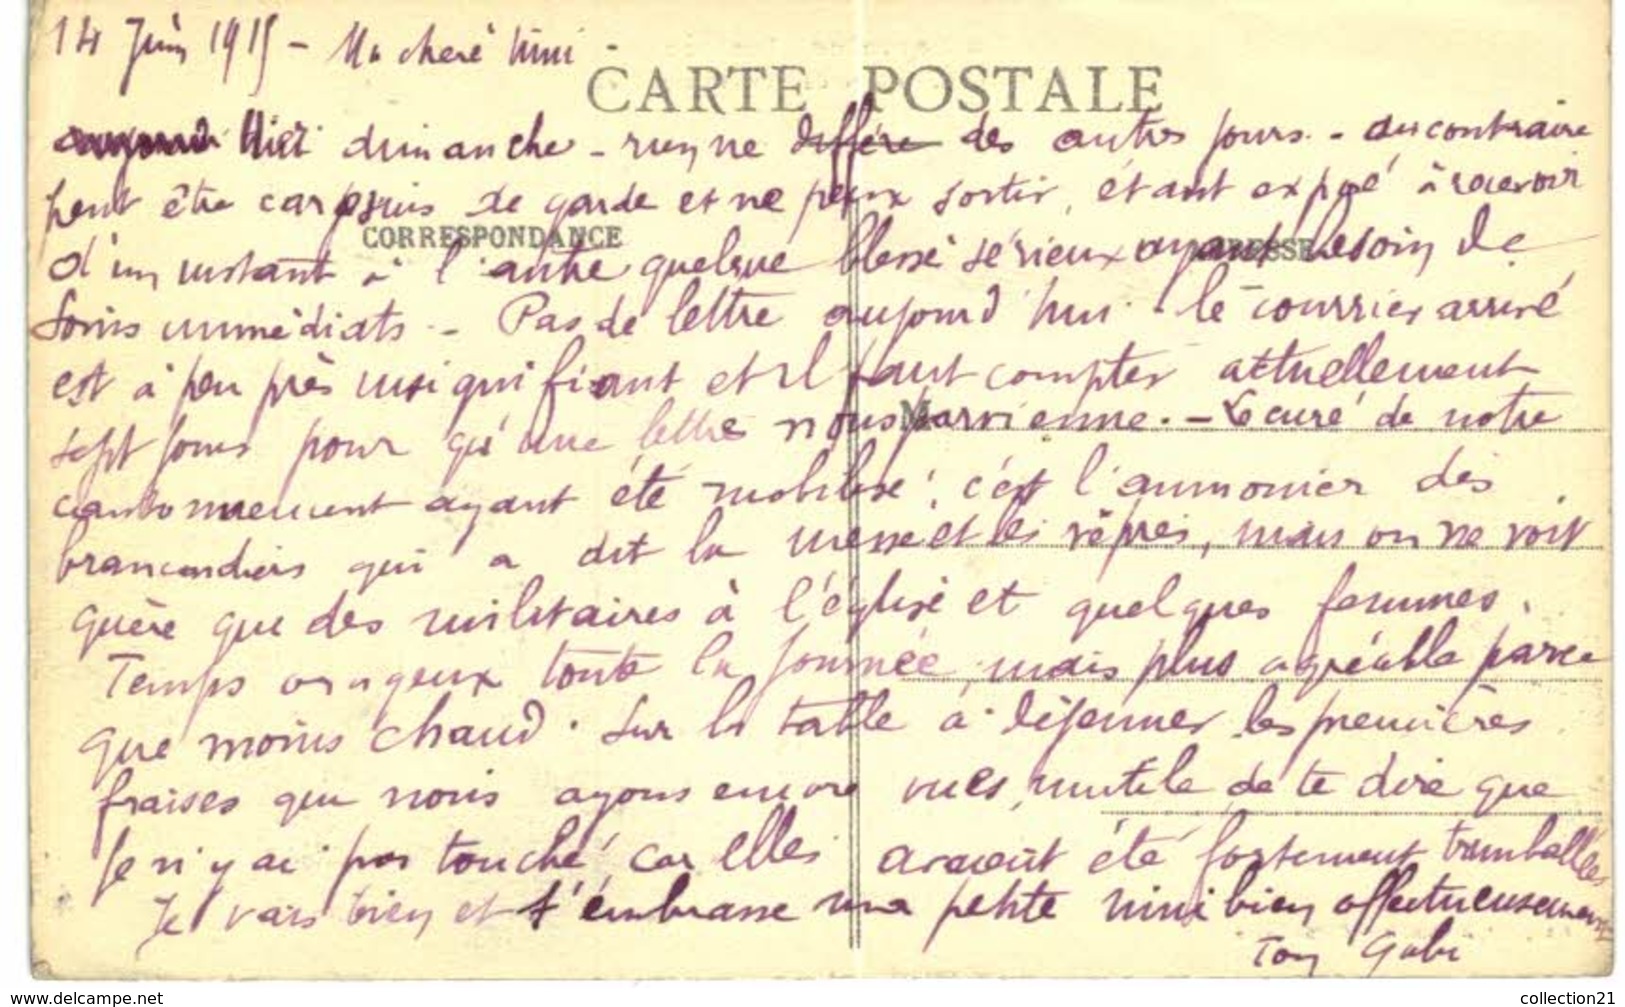 14 Juin 1915 - Ma chère Nini -
CARTE POSTALE
Hier dimanche - rien ne diffère des autres jours - au contraire
peut être car je suis de garde et ne peux sortir, étant exposé à recevoir
CORRESPONDANCE
ADRESSE
d'un instant à l'autre quelque blessé sérieux ayant besoin de
soins immédiats - Pas de lettre aujourd'hui - le courrier arrivé
est à peu près insignifiant et il faut compter actuellement
M
sept jours pour qu'une lettre nous parvienne. - Le curé de notre
cantonnement ayant été mobilisé, c'est l'aumonier des
brancardiers qui a dit la messe et les vêpres, mais on ne voit
guère que des militaires à l'église et quelques femmes.
Temps orageux toute la journée, mais plus agréable parce
que moins chaud. Sur la table à déjeuner les premières
fraises que nous ayons encore vues, inutile de te dire que
je n'y ai pas touché, car elles avaient été fortement trimballées
Je vais bien et t'embrasse ma petite Nini bien affectueusement
Ton Gabi
https://www.delcampe.net
collection21